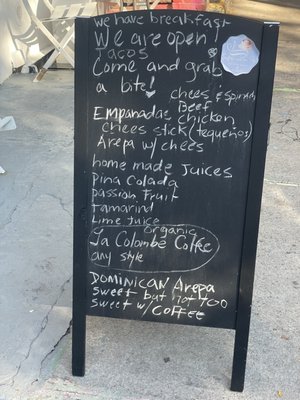 we have breakfast
We are open
Tacos
Come and grab
a bite!
chees & spinach
Beef
Empanadas chicken
chees stick (tequeños)
Arepa w/ chees
home made Juices
pina Colada
passion Fruit
tamarind
Lime Juice
organic
La Colombe Coffee
any style
DOMINICAN Arepa
Sweet but not TOO
Sweet w/ COFFEE